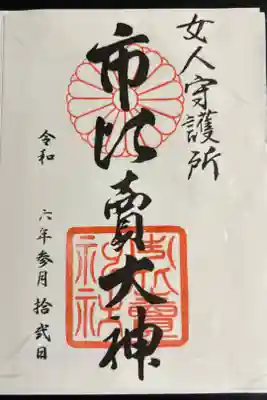 女人守護所
市比賣大神
令和 六年参月拾弐日
市比賣神社